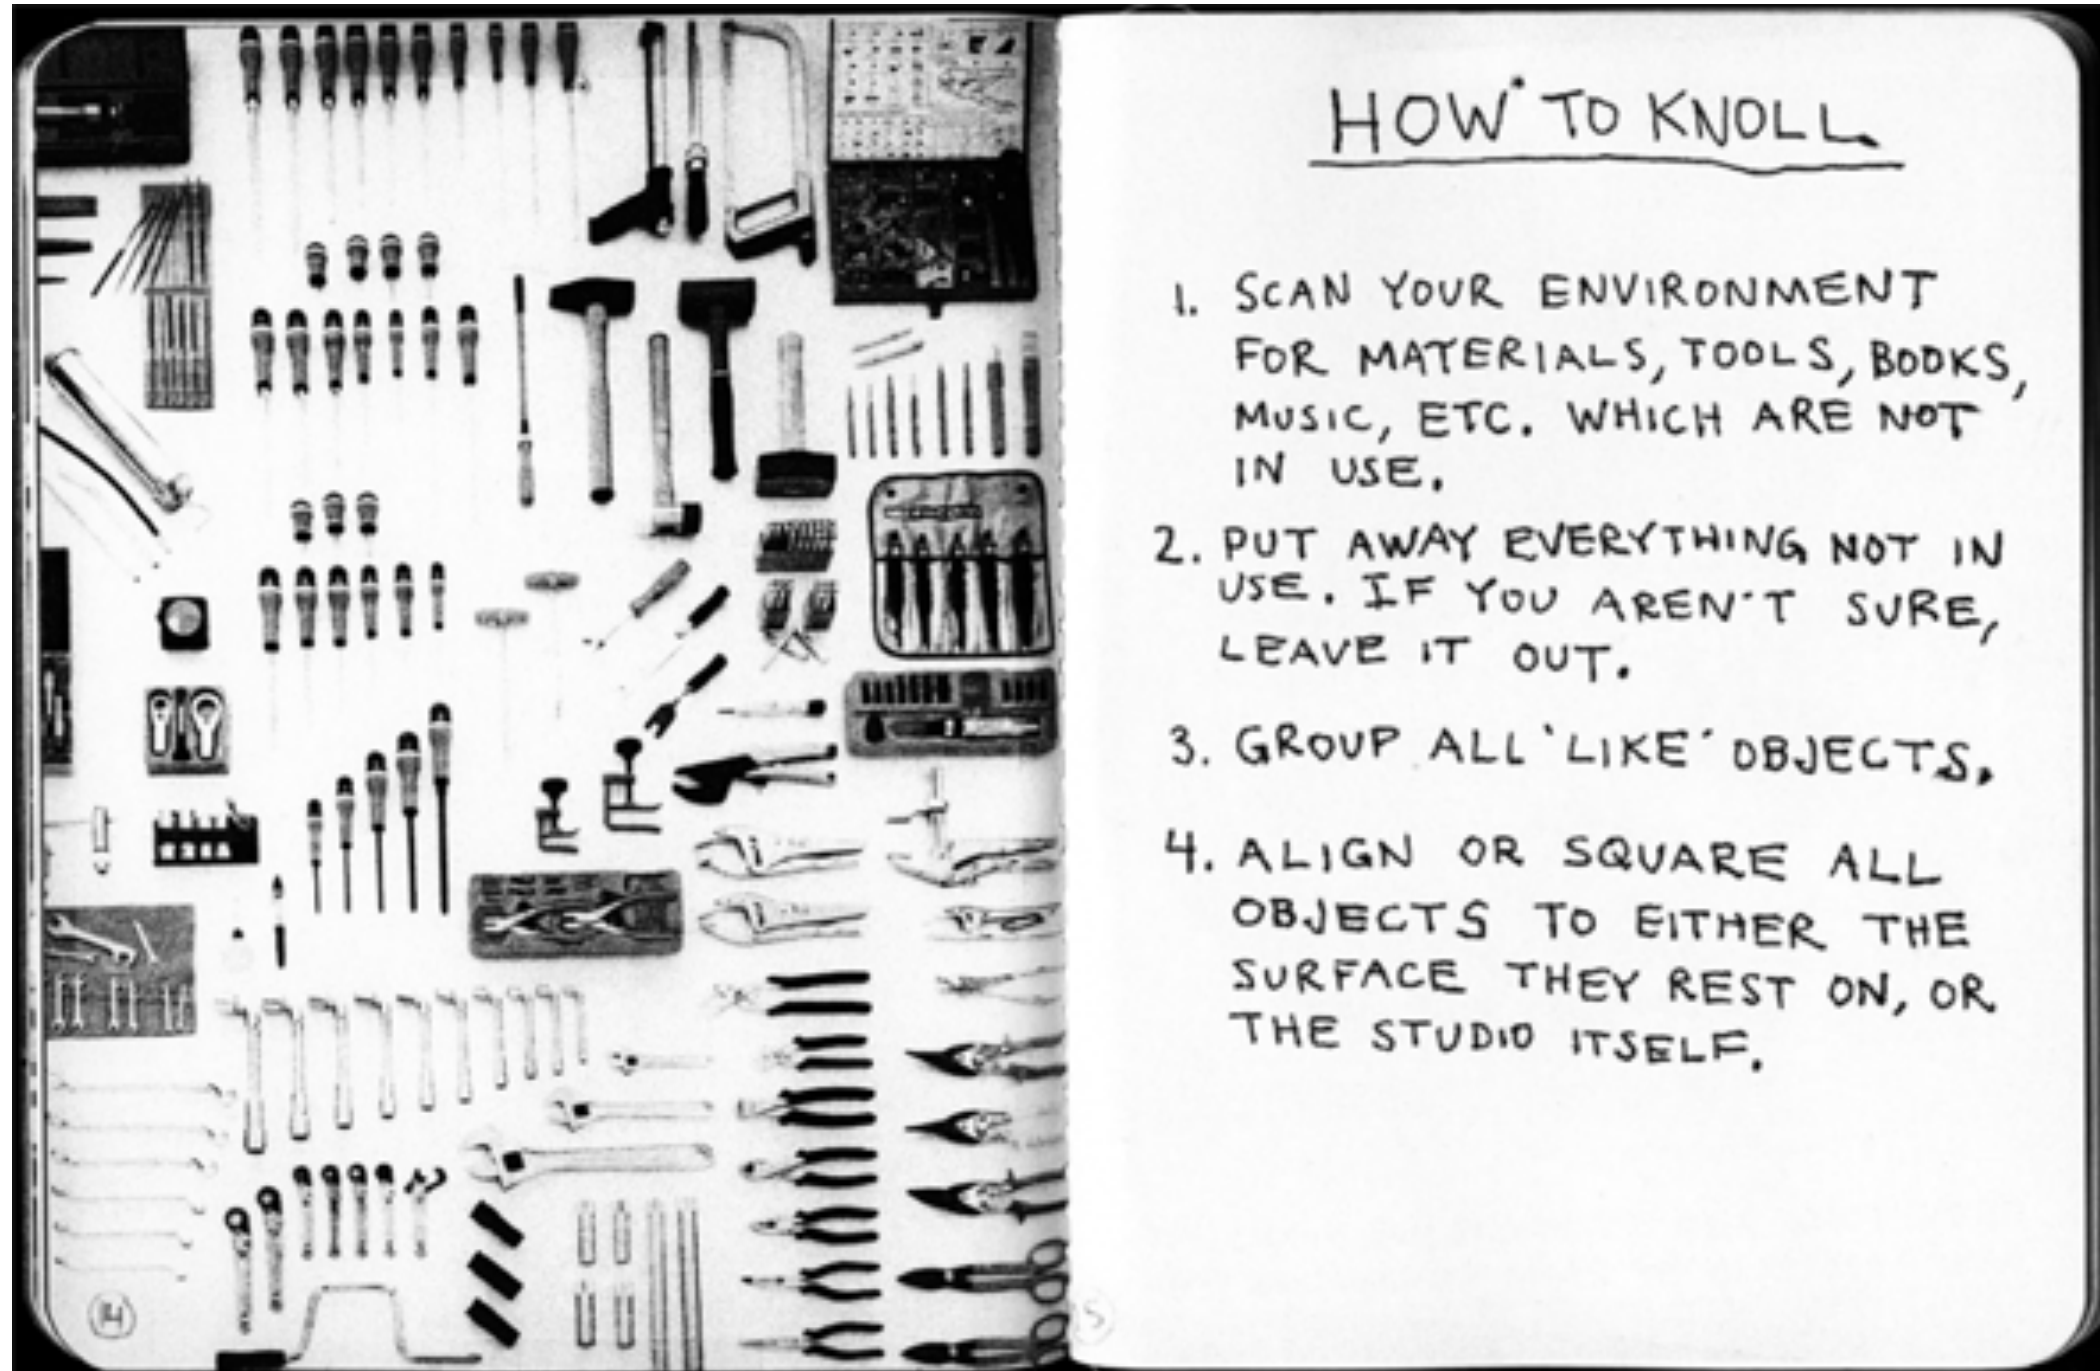 HOW* TO KNOLL.
1. SCAN YOUR ENVIRONMENT
FOR MATERIALS, TOOLS, BOOKS,
MUSIC, ETC. WHICH ARE NOT
IN USE.
2. PUT AWAY EVERYTHING NOT IN
USE. IF YOU AREN'T SURE,
LEAVE IT OUT.
3. GROUP ALL 'LIKE' OBJECTS.
4. ALIGN OR SQUARE ALL
OBJECTS TO EITHER THE
SURFACE THEY REST ON, OR
THE STUDIO ITSELF.
14